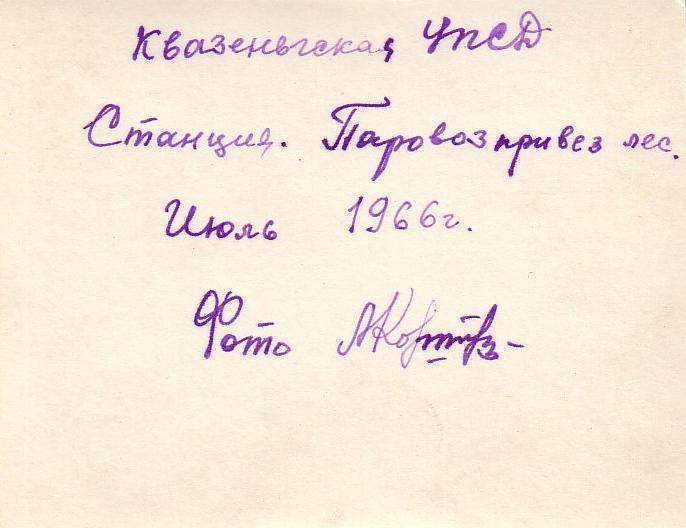 Квазеньгская УЖД
Станция. Паровоз привез лес.
Июль 1966г.
Фото